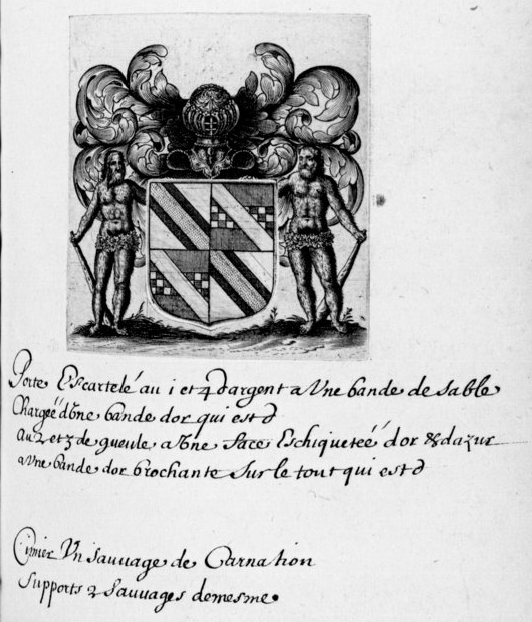 Porte Escartelé au 1 et 4 d'argent a Vne bande de sable
Chargeé dVne bande d'or qui est d
Au 2 et 3 de gueule a Vne face Eschiqueteé d'or & dazur
a Vne bande dor brochante sur le tout qui est d
Cimier Vn sauuage de Carnation
supports 2 sauuages demesme.